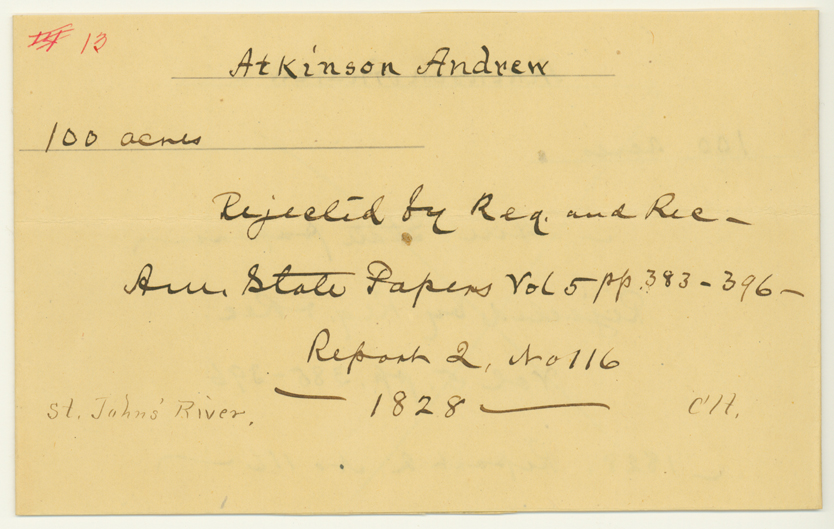 13
Atkinson Andrew
100 acres
Rejected by Reg. and Rec -
Am. State Papers Vol 5 pp. 383 - 396 -
Report 2, No 116
— 1828 —
St. Johns' River.